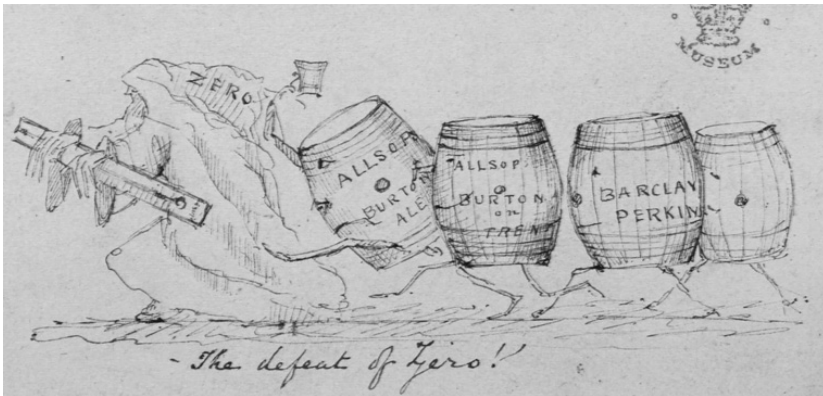 MUSEUM
ZERO
ALLSOP
BURTON
ALE
ALLSOP
BURTON
on
TREN
BARCLAY
PERKIN
- The defeat of Zero!!